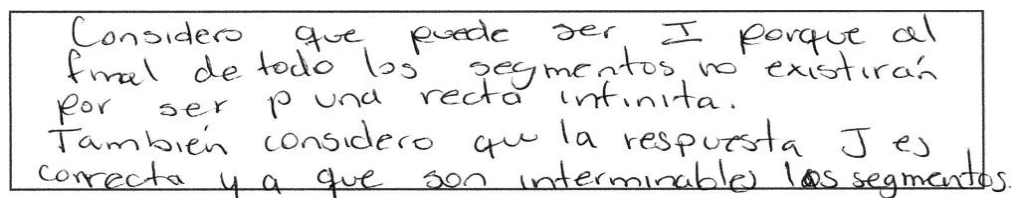 Considero que puede ser I porque al
final de todo los segmentos no existirán
por ser p una recta infinita.
También considero que la respuesta J es
correcta y a que son interminables los segmentos.